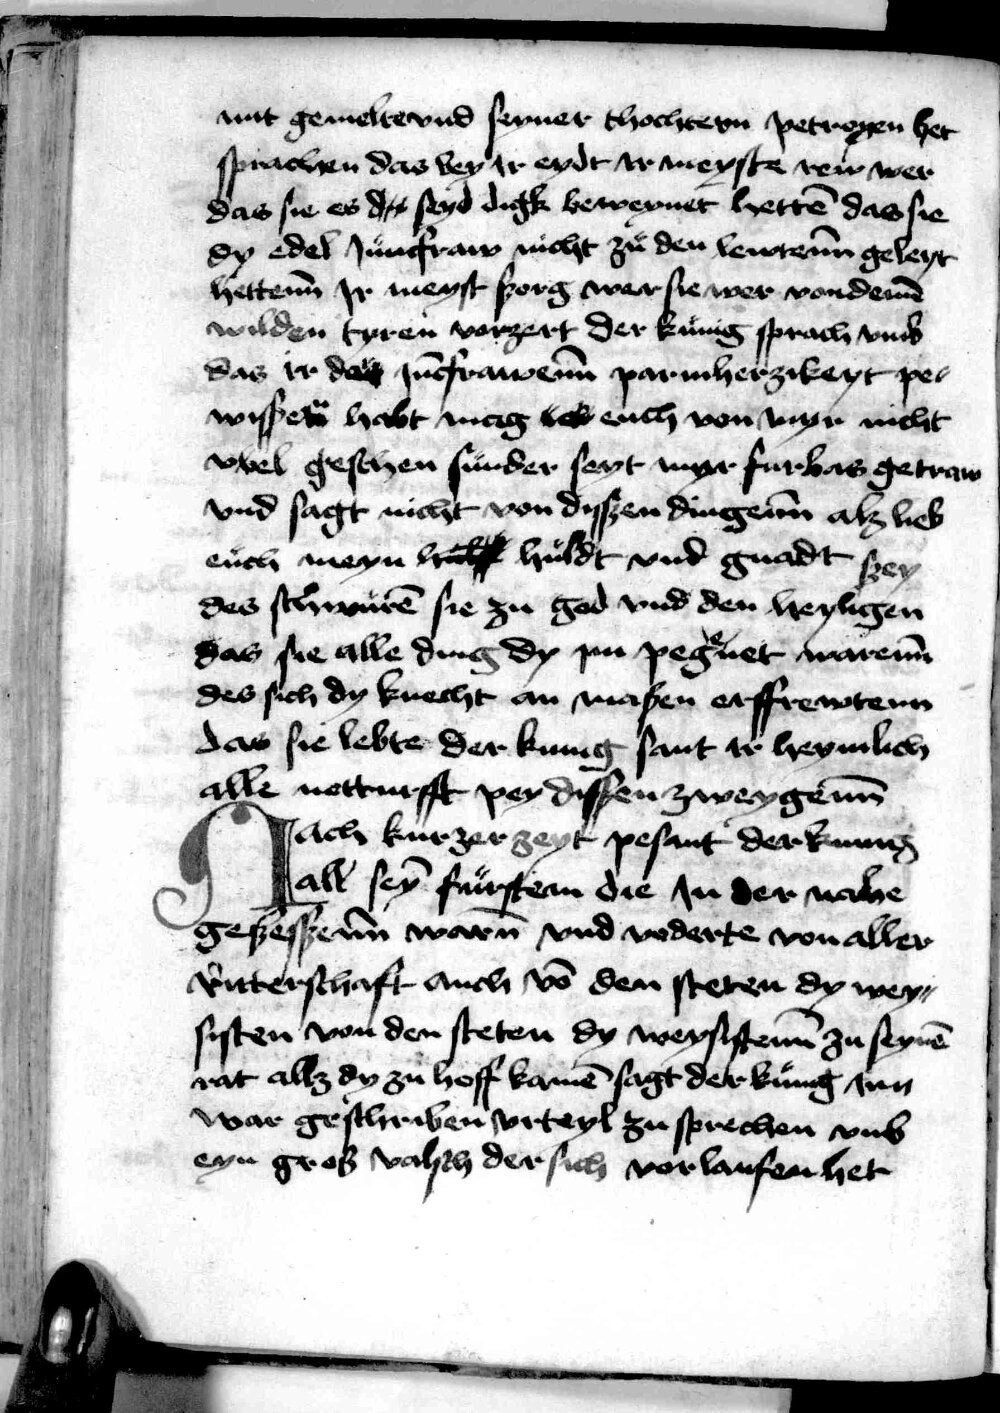 mit gemelter vnd seyner thochtern petrogen het
sprachen das bey ir eydt ir meyste rew wer
das sie es seyd digk beweynet hettē das sie
dy edel Junckfraw nicht zu den lewtenn geleyt
hettenn Ir meyst sorg wer sie wer von denē
wilden tyren vorzert der kunig sprach vmb
das ir der Jūcfrawenn parmherzikeyt pe-
wissen habt mag euch von myr nicht
vbel geschen sunder seyt myr furbas getraw
vnd sagt nicht von disszen dingenn alz lieb
euch meyn huldt vnd gnadt szey
des schwurē sie zu god vnd den heyligen
das sie alle ding dy jm pegenet warenn
des sich dy knecht an maßen erffrewtenn
das sie lebte der kunig sant ir heymlich
alle notturfft pey dissen zweygenn
Nach kurzer zeyt pesant der kunig
all seȳ fursten die In der nahe
geseßenn warn vnd voderte von aller
ritterschaft auch vō den steten dy wey-
sisten von den steten dy weysistenn zu seynē
rat allz dy zu hoff kamē sagt der kunig Inn
war geschriben vrteyl zu sprechen vmb
eyn groß valsch der sich vorlaufen het